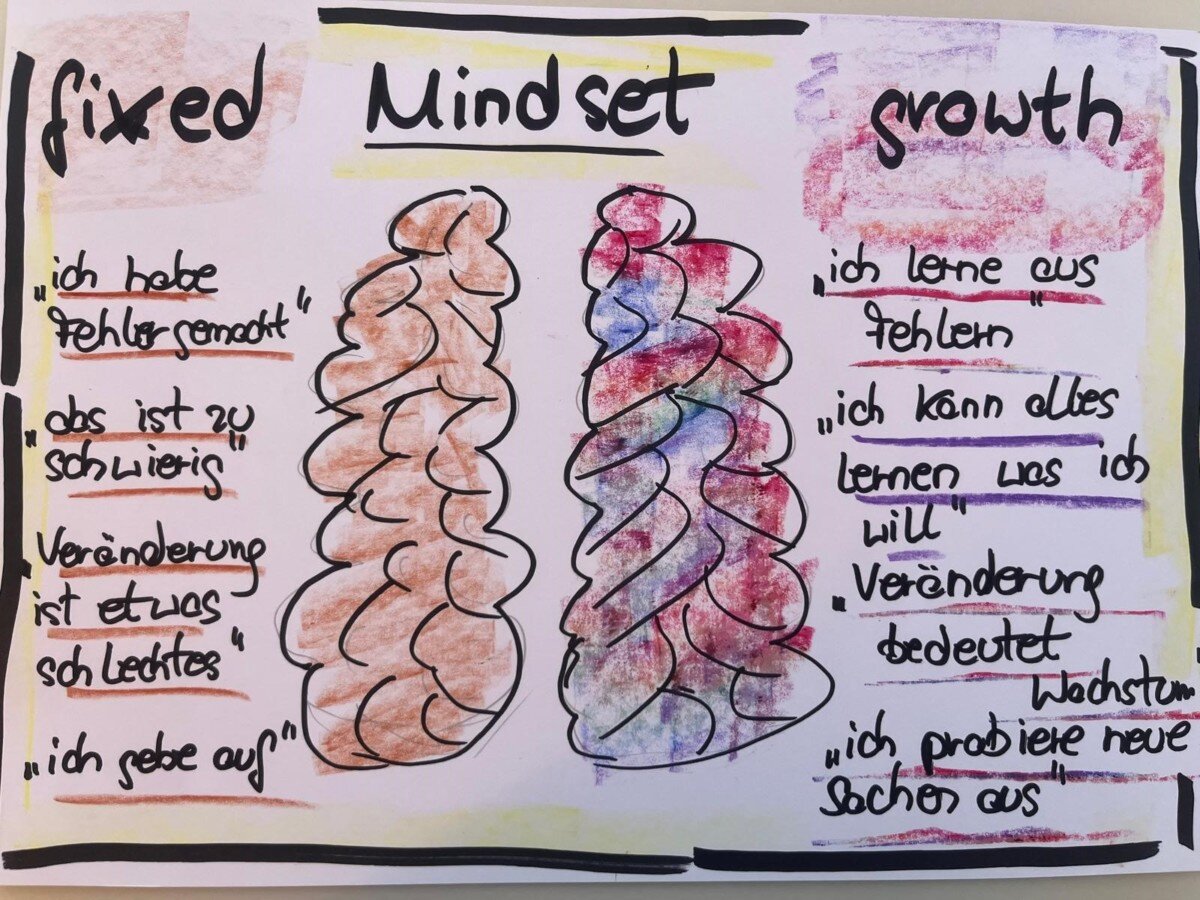 fixed Mindset growth
„ich habe
Fehler gemacht“
„das ist zu
schwierig“
„Veränderung
ist etwas
schlechtes“
„ich gebe auf“
„ich lerne aus
Fehlern“
„ich kann alles
lernen was ich
will“
„Veränderung
bedeutet
Wachstum“
„ich probiere neue
Sachen aus“